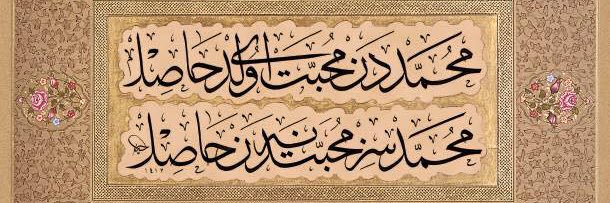 محمددن محبت اولدى حاصل
محمدسز محبتدن نه حاصل